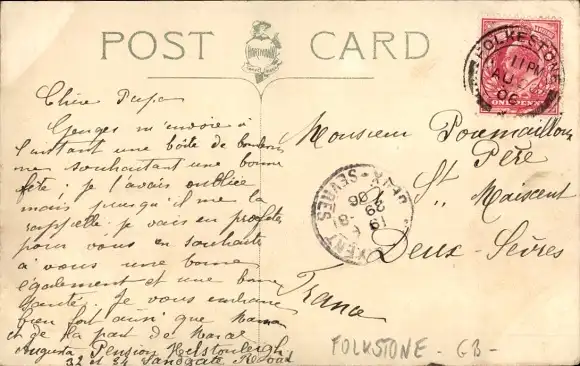 POST CARD
Chère Papa
Georges m'envoie à
l'instant une boîte de bonbons
me souhaitant une bonne
fête ; je l'avais oubliée
mais puisqu'il me la
rappelle je vais en profiter
pour vous en souhaiter
à vous une bonne
également et une bonne
santé. Je vous embrasse
bien fort ainsi que Maman
et de la part de Marcel
Augusta Pension
32 et 34 Sandgate Road
FOLKESTONE
11 PM
AU
06
ONE PENNY
Monsieur
Père
St Maixent
Deux-Sèvres
France
SEVRES
FOLKSTONE - GB -